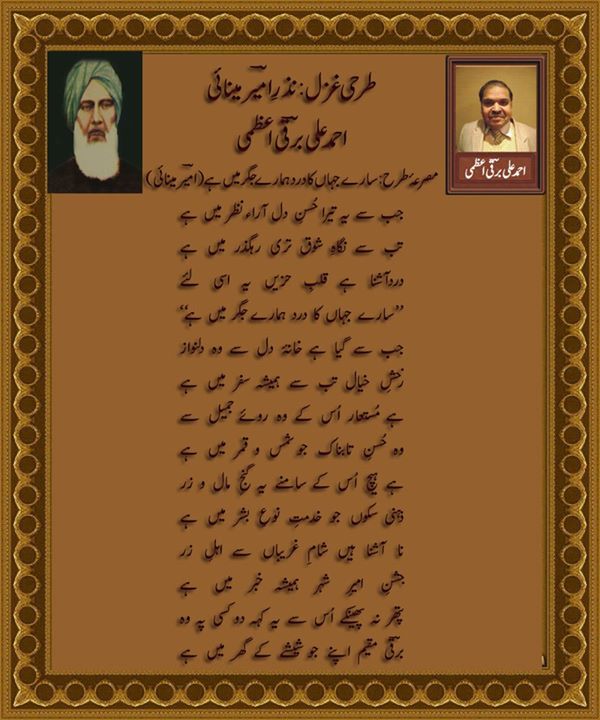 طرحی غزل: نذرِ امیرؔ مینائی
احمد علی برقیؔ اعظمی
مصرعۂ طرح: سارے جہاں کا درد ہمارے جگر میں ہے (امیرؔ مینائی)
احمد علی برقیؔ اعظمی
جب سے یہ تیرا حُسنِ دل آراء نظر میں ہے
تب سے نگاہِ شوق تری رہگذر میں ہے
درد آشنا ہے قلبِ حزیں یہ اسی لئے
’’سارے جہاں کا درد ہمارے جگر میں ہے‘‘
جب سے گیا ہے خانۂ دل سے وہ دلنواز
رخشِ خیال تب سے ہمیشہ سفر میں ہے
ہے مُستعار اُس کے وہ روئے جمیل سے
وہ حُسنِ تابناک جو شمس و قمر میں ہے
ہے ہیچ اُس کے سامنے یہ گنجِ مال و زر
ذہنی سکوں جو خدمتِ نوعِ بشر میں ہے
نا آشنا ہیں شامِ غریباں سے اہلِ زر
جشنِ امیرِ شہر ہمیشہ خبر میں ہے
پتھر نہ پھینکے اُس سے یہ کہہ دو کسی پہ وہ
برقیؔ مقیم اپنے جو شیشے کے گھر میں ہے